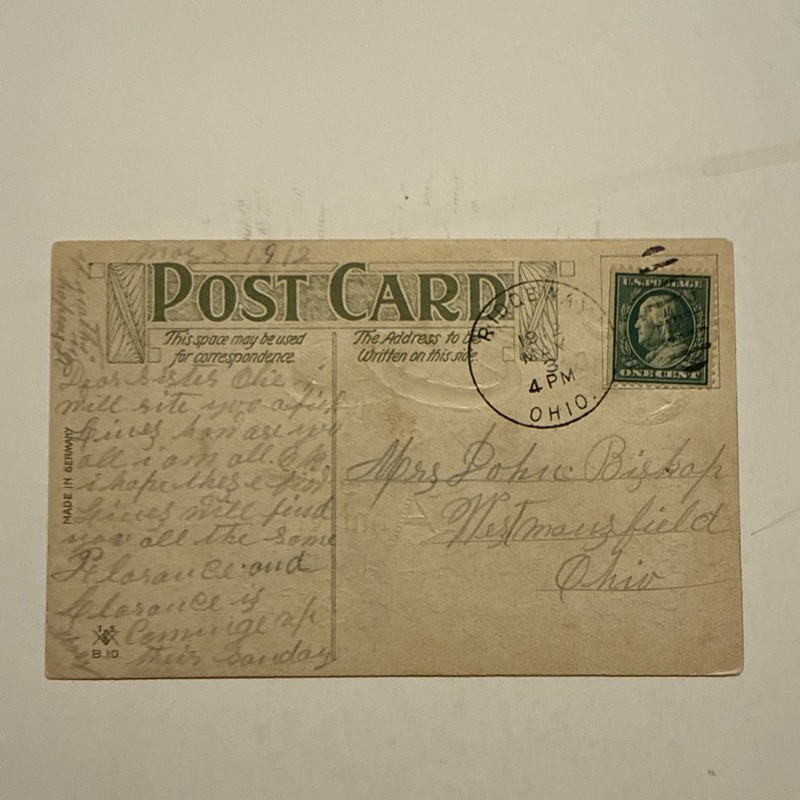 May 3 1912
POST CARD
This space may be used
for correspondence.
The Address to be
Written on this side.
U.S. POSTAGE
ONE CENT
RIDGEWAY
MAY
3
4 PM
OHIO.
Dear Sister Olie i
will rite you a few
Lines how are you
all i am all O.K.
i hope these few
Lines will find
you all the same
Florance and
Clarance is
Cominge up
this Sunday
Mrs John Bishop
West mansfield
Ohio
MADE IN GERMANY
I. S.
B. 10.